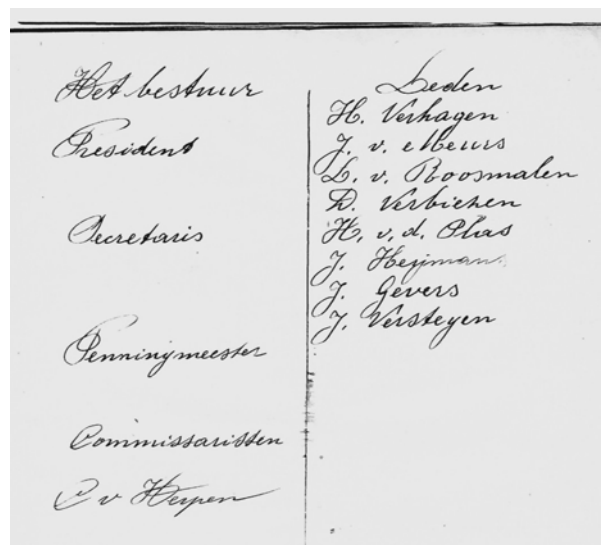 Het bestuur
President
Secretaris
Penningmeester
Commissarissen
C v Herpen
Leden
H. Verhagen
J. v. Meurs
L. v. Roosmalen
D. Verbieken
H. v. d. Plas
J. Heijmans
J. Gevers
J. Versteyen